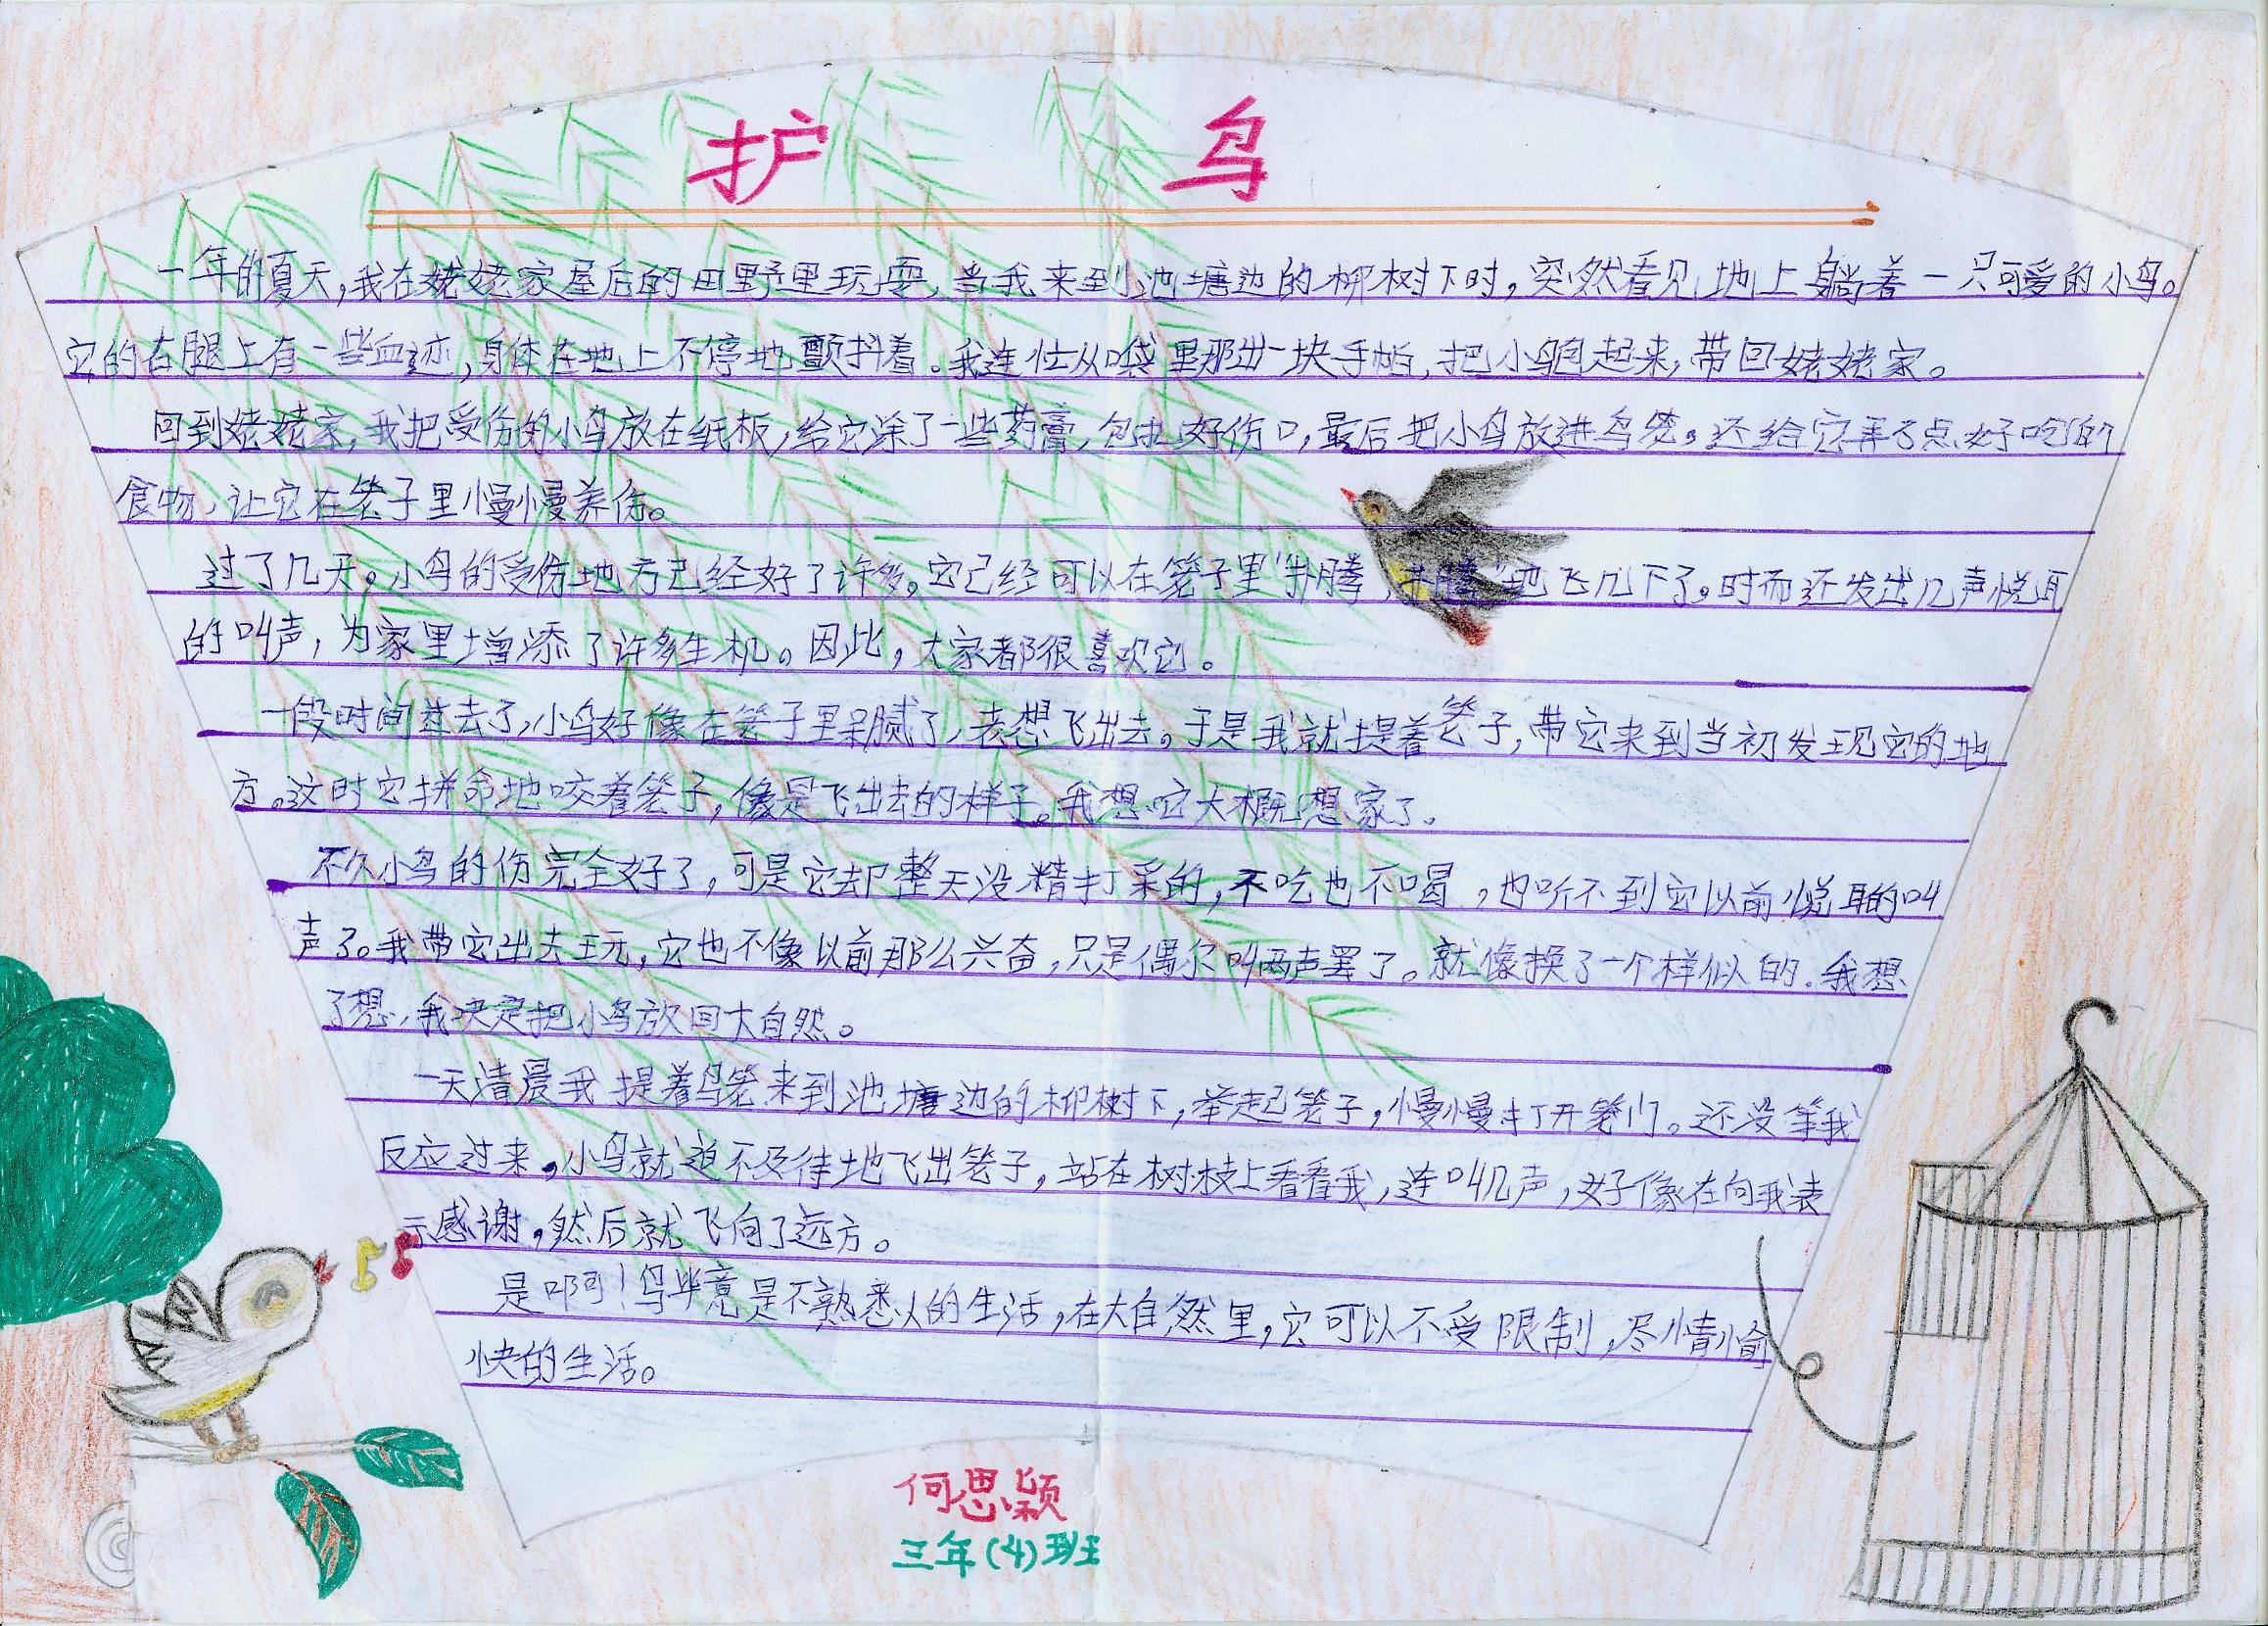 护 鸟
一年的夏天,我在姥姥家屋后的田野里玩耍,当我来到池塘边的柳树下时,突然看见地上躺着一只可爱的小鸟。
它的右腿上有一些血迹,身体在地上不停地颤抖着。我连忙从口袋里那出一块手帕,把小鸟包起来,带回姥姥家。
回到姥姥家,我把受伤的小鸟放在纸板,给它涂了一些药膏,包扎好伤口,最后把小鸟放进鸟笼。还给它弄了点好吃的
食物,让它在笼子里慢慢养伤。
过了几天。小鸟的受伤地方已经好了许多。它已经可以在笼子里“扑腾,扑腾”地飞几下了。时而还发出几声悦耳
的叫声,为家里增添了许多生机。因此,大家都很喜欢它。
一段时间过去了,小鸟好像在笼子里呆腻了,老想飞出去。于是我就提着笼子,带它来到当初发现它的地
方。这时它拼命地咬着笼子,像是飞出去的样子。我想它大概想家了。
不久小鸟的伤完全好了,可是它却整天没精打采的,不吃也不喝,也听不到它以前悦耳的叫
声了。我带它出去玩,它也不像以前那么兴奋,只是偶尔叫两声罢了。就像换了一个样似的。我想
了想,我决定把小鸟放回大自然。
一天清晨我提着鸟笼来到池塘边的柳树下,举起笼子,慢慢打开笼门。还没等我
反应过来,小鸟就迫不及待地飞出笼子,站在树枝上看看我,连叫几声,好像在向我表
示感谢,然后就飞向了远方。
是啊!鸟毕竟是不熟悉人的生活,在大自然里,它可以不受限制,尽情愉
快的生活。
何思颖
三年(4)班